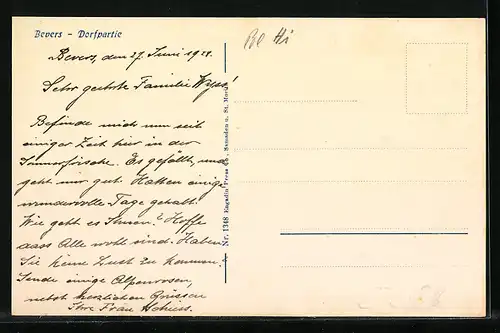 Bevers - Dorfpartie
Bevers, den 27. Juni 1928.
Sehr geehrte Familie Wyss!
Befinde mich nun seit
einiger Zeit hier in der
Sommerfrische. Es gefällt, und
geht mir gut. Hatten einige
wundervolle Tage gehabt.
Wie geht es Ihnen? Hoffe
dass Alle wohl sind. Haben
Sie keine Lust zu kommen.
Sende einige Alpenrosen,
nebst herzlichen Grüssen
Ihre Frau
Nr. 1348 Engadin Press Co., Samaden u. St. Moritz